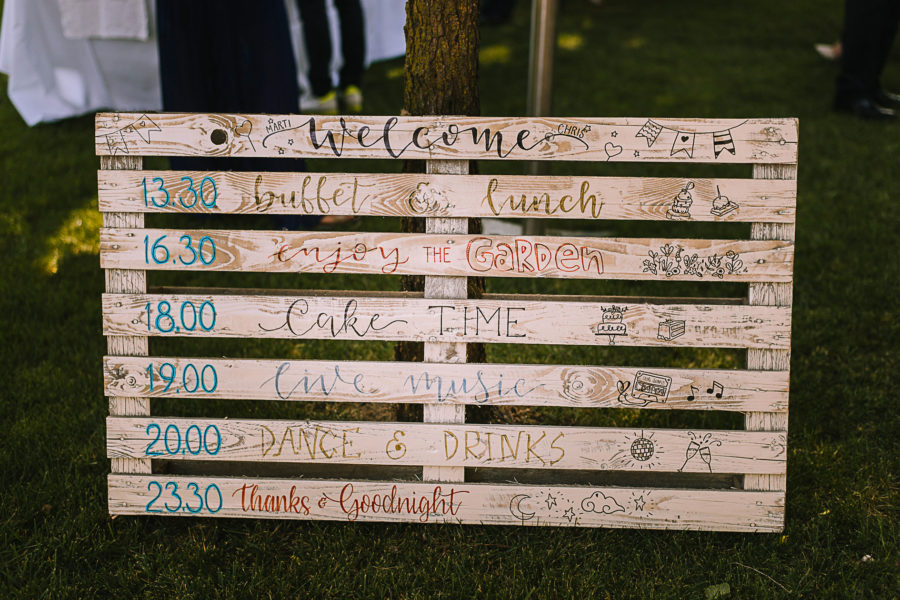 MARTI Welcome CHRIS
13.30 buffet & lunch
16.30 enjoy THE GARDEN
18.00 Cake TIME
19.00 live music
20.00 DANCE & DRINKS
23.30 Thanks & Goodnight